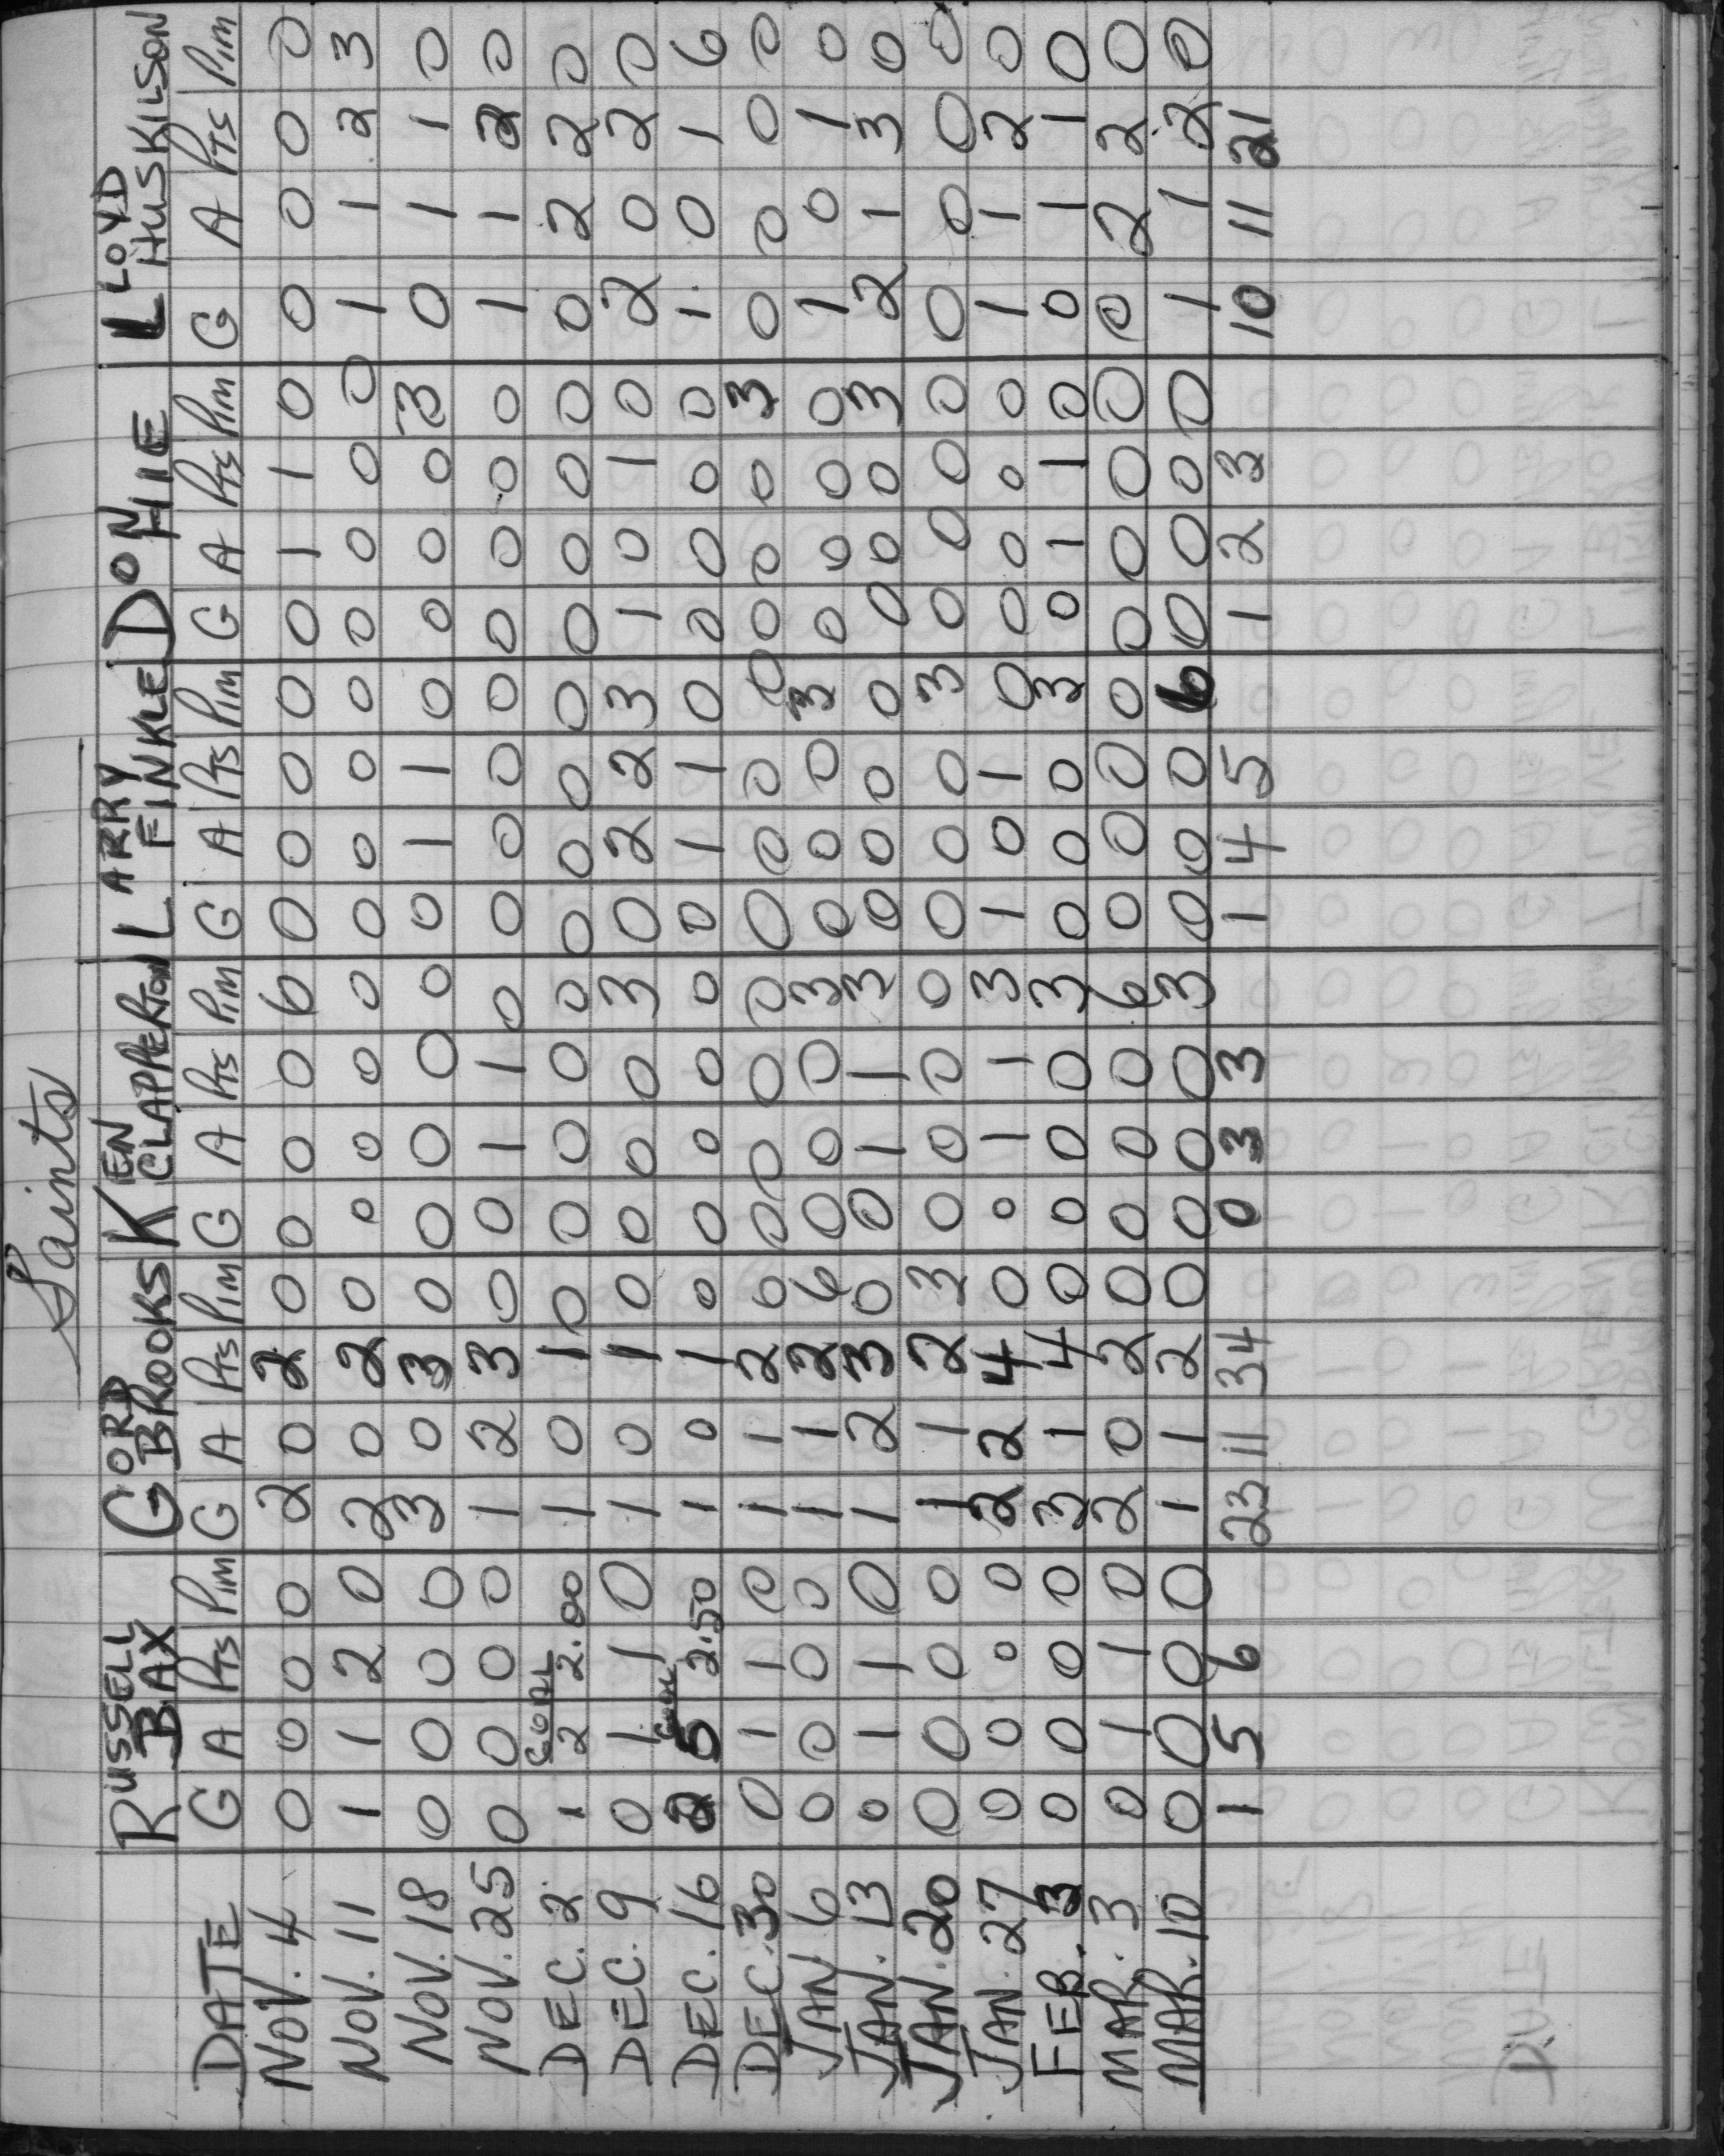 Saints
RUSSELL BAX GORD BROOKS KEN CLAPPERTON LARRY FINKLE DON HIE LLOYD HUSKILSON
DATE G A PTS PIM G A PTS PIM G A PTS PIM G A PTS PIM G A PTS PIM G A PTS PIM
NOV. 4 0 0 0 0 2 0 2 0 0 0 0 6 0 0 0 0 0 1 1 0 0 0 0 0
NOV. 11 1 1 2 0 2 0 2 0 0 0 0 0 0 0 0 0 0 0 0 0 1 1 2 3
NOV. 18 0 0 0 0 3 0 3 0 0 0 0 0 0 1 1 0 0 0 0 3 0 1 1 0
NOV. 25 0 0 0 0 1 2 3 0 0 1 1 0 0 0 0 0 0 0 0 0 1 1 2 0
GOAL
DEC. 2 1 2 2.00 1 0 1 0 0 0 0 0 0 0 0 0 0 0 0 0 0 2 2 0
DEC. 9 0 1 1 0 1 0 1 0 0 0 0 3 0 2 2 3 1 0 1 0 2 0 2 0
GOAL
DEC. 16 2 5 2.50 1 0 1 0 0 0 0 0 0 1 1 0 0 0 0 0 1 0 1 6
DEC. 30 0 1 1 0 1 1 2 0 0 0 0 0 0 0 0 0 0 0 0 3 0 0 0 0
JAN 6 0 0 0 0 1 1 2 6 0 0 0 3 0 0 0 3 0 0 0 0 1 0 1 0
JAN. 13 0 1 1 0 1 2 3 0 0 1 1 3 0 0 0 0 0 0 0 3 2 1 3 0
JAN. 20 0 0 0 0 1 1 2 3 0 0 0 0 0 0 0 3 0 0 0 0 0 0 0 0
JAN. 27 0 0 0 0 2 2 4 0 0 1 1 3 1 0 1 0 0 0 0 0 1 1 2 0
FEB. 3 0 0 0 0 3 1 4 0 0 0 0 3 0 0 0 3 0 1 1 0 0 1 1 0
MAR. 3 0 1 1 0 2 0 2 0 0 0 0 6 0 0 0 0 0 0 0 0 0 2 2 0
MAR. 10 0 0 0 0 1 1 2 0 0 0 0 3 0 0 0 6 0 0 0 0 1 1 2 0
1 5 6 23 11 34 0 3 3 1 4 5 1 2 3 10 11 21